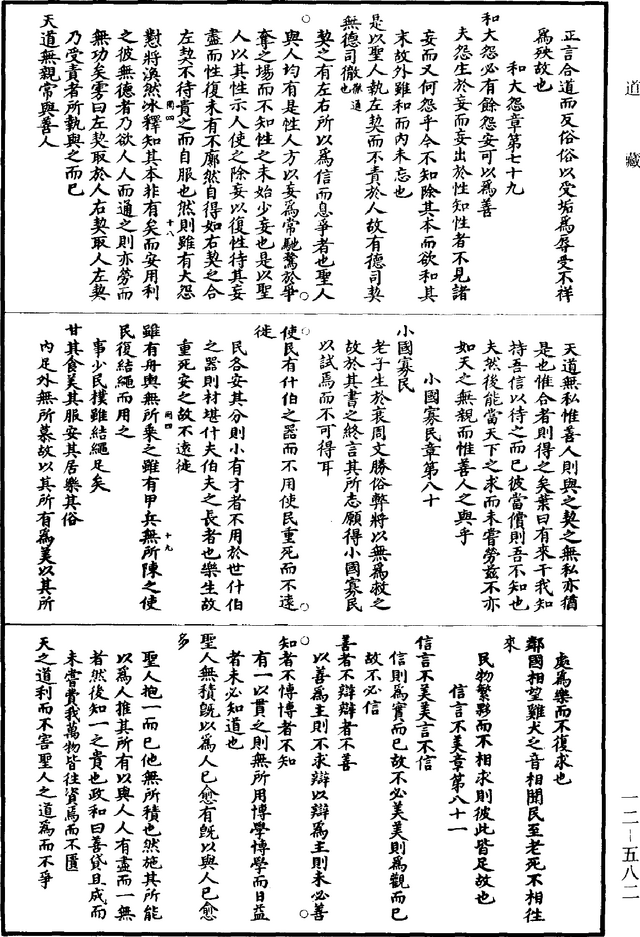 道藏
正言合道而反俗俗以受垢為辱受不祥
為殃故也
和大怨章第七十九
和大怨必有餘怨安可以為善
夫怨生於妄而妄出於性知性者不見諸
妄而又何怨乎今不知除其本而欲和其
末故外雖和而內未忘也
是以聖人執左契而不責於人故有德司契
無德司徹徹通
契之有左右所以為信而息爭者也聖人
與人均有是性人方以妄為常馳騖於爭
奪之場而不知性之未始少妄也是以聖
人以其性示人使之除妄以復性待其妄
盡而性復未有不廓然自得如右契之合
左契不待責之而自服也然則雖有大怨
同四 十八
懟將渙然冰釋知其本非有矣而安用利
之彼無德者乃欲人人而通之則亦勞而
無功矣雱曰左契取於人右契取人左契
乃受責者所執與之而已
天道無親常與善人
天道無私惟善人則與之契之無私亦猶
是也惟合者則得之矣葉曰有來干我知
持吾信以待之而已彼當償則吾不知也
夫然後能當天下之求而未嘗勞茲不亦
如天之無親而惟善人之與乎
小國寡民章第八十
小國寡民
老子生於衰周文勝俗弊將以無為救之
故於其書之終言其所志願得小國寡民
以試焉而不可得耳
使民有什伯之器而不用使民重死而不遠
徙
民各安其分則小有才者不用於世什伯
之器則材堪什夫伯夫之長者也樂生故
重死安之故不遠徙
同四 十九
雖有舟輿無所乘之雖有甲兵無所陳之使
民復結繩而用之
事少民樸雖結繩足矣
甘其食美其服安其居樂其俗
內足外無所慕故以其所有為美以其所
處為樂而不復求也
鄰國相望雞犬之音相聞民至老死不相往
來
民物繁夥而不相求則彼此皆足故也
信言不美章第八十一
信言不美美言不信
信則為實而已故不必美美則為觀而已
故不必信
善者不辯辯者不善
以善為主則不求辯以辯為主則未必善
知者不博博者不知
有一以貫之則無所用博學博學而日益
者未必知道也
聖人無積旣以為人已愈有旣以與人已愈
多
聖人抱一而已他無所積也然施其所能
以為人推其所有以與人人有盡而一無
者然後知一之貴也政和曰善貸且成而
未嘗費我萬物皆往資焉而不匱
天之道利而不害聖人之道為而不爭
一二－五八二